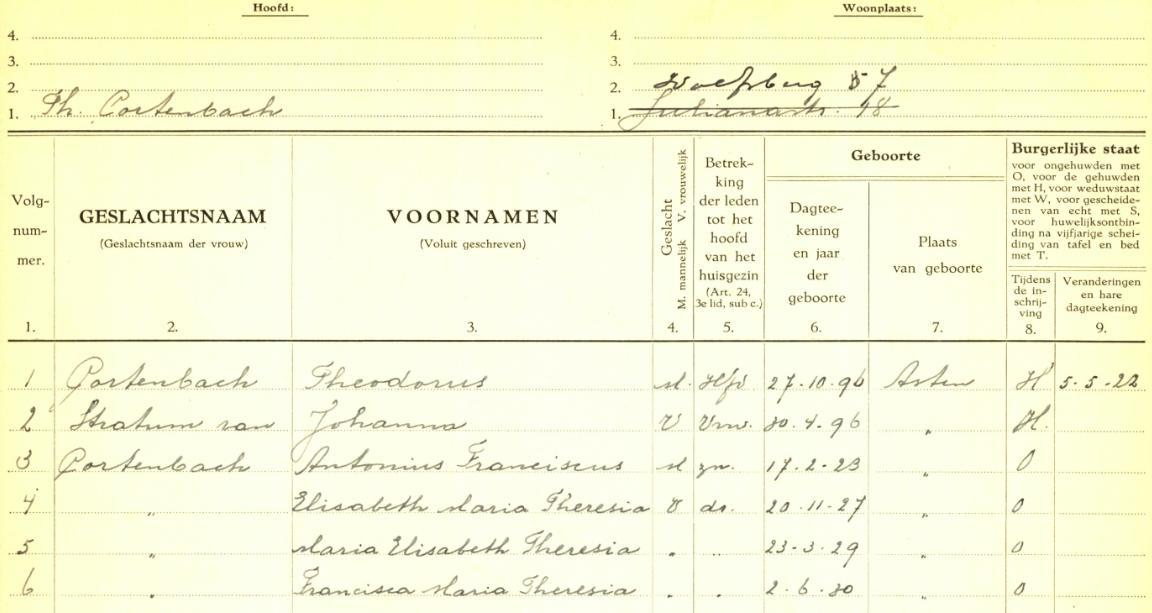 Hoofd: Woonplaats:
4. 4.
3. 3.
2. 2. Wolfsberg 57
1. Th. Cortenbach 1. Julianastr. 18
Volg-
num-
mer.
1.
GESLACHTSNAAM
(Geslachtsnaam der vrouw)
2.
VOORNAMEN
(Voluit geschreven)
3.
Geslacht
M. mannelijk V. vrouwelijk
4.
Betrek-
king
der leden
tot het
hoofd
van het
huisgezin
(Art. 24,
3e lid, sub c.)
5.
Geboorte
Dagtee-
kening
en jaar
der
geboorte
6.
Plaats
van geboorte
7.
Burgerlijke staat
voor ongehuwden met
O, voor de gehuwden
met H, voor weduwstaat
met W, voor gescheide-
nen van echt met S,
voor huwelijksontbin-
ding na vijfjarige schei-
ding van tafel en bed
met T.
Tijdens
de in-
schrij-
ving
8.
Veranderingen
en hare
dagteekening
9.
1 Cortenbach Theodorus M. Hfd 27-10-96 Asten H 5-5-22
2 Stratum van Johanna V Vrw. 30-4-96 „ H.
3 Cortenbach Antonius Franciscus M zn. 17-2-23 „ O
4 „ Elisabeth Maria Theresia V dr. 20-11-27 „ O
5 „ Maria Elisabeth Theresia „ „ 23-3-29 „ O
6 „ Francisca Maria Theresia 2-6-30 „ O